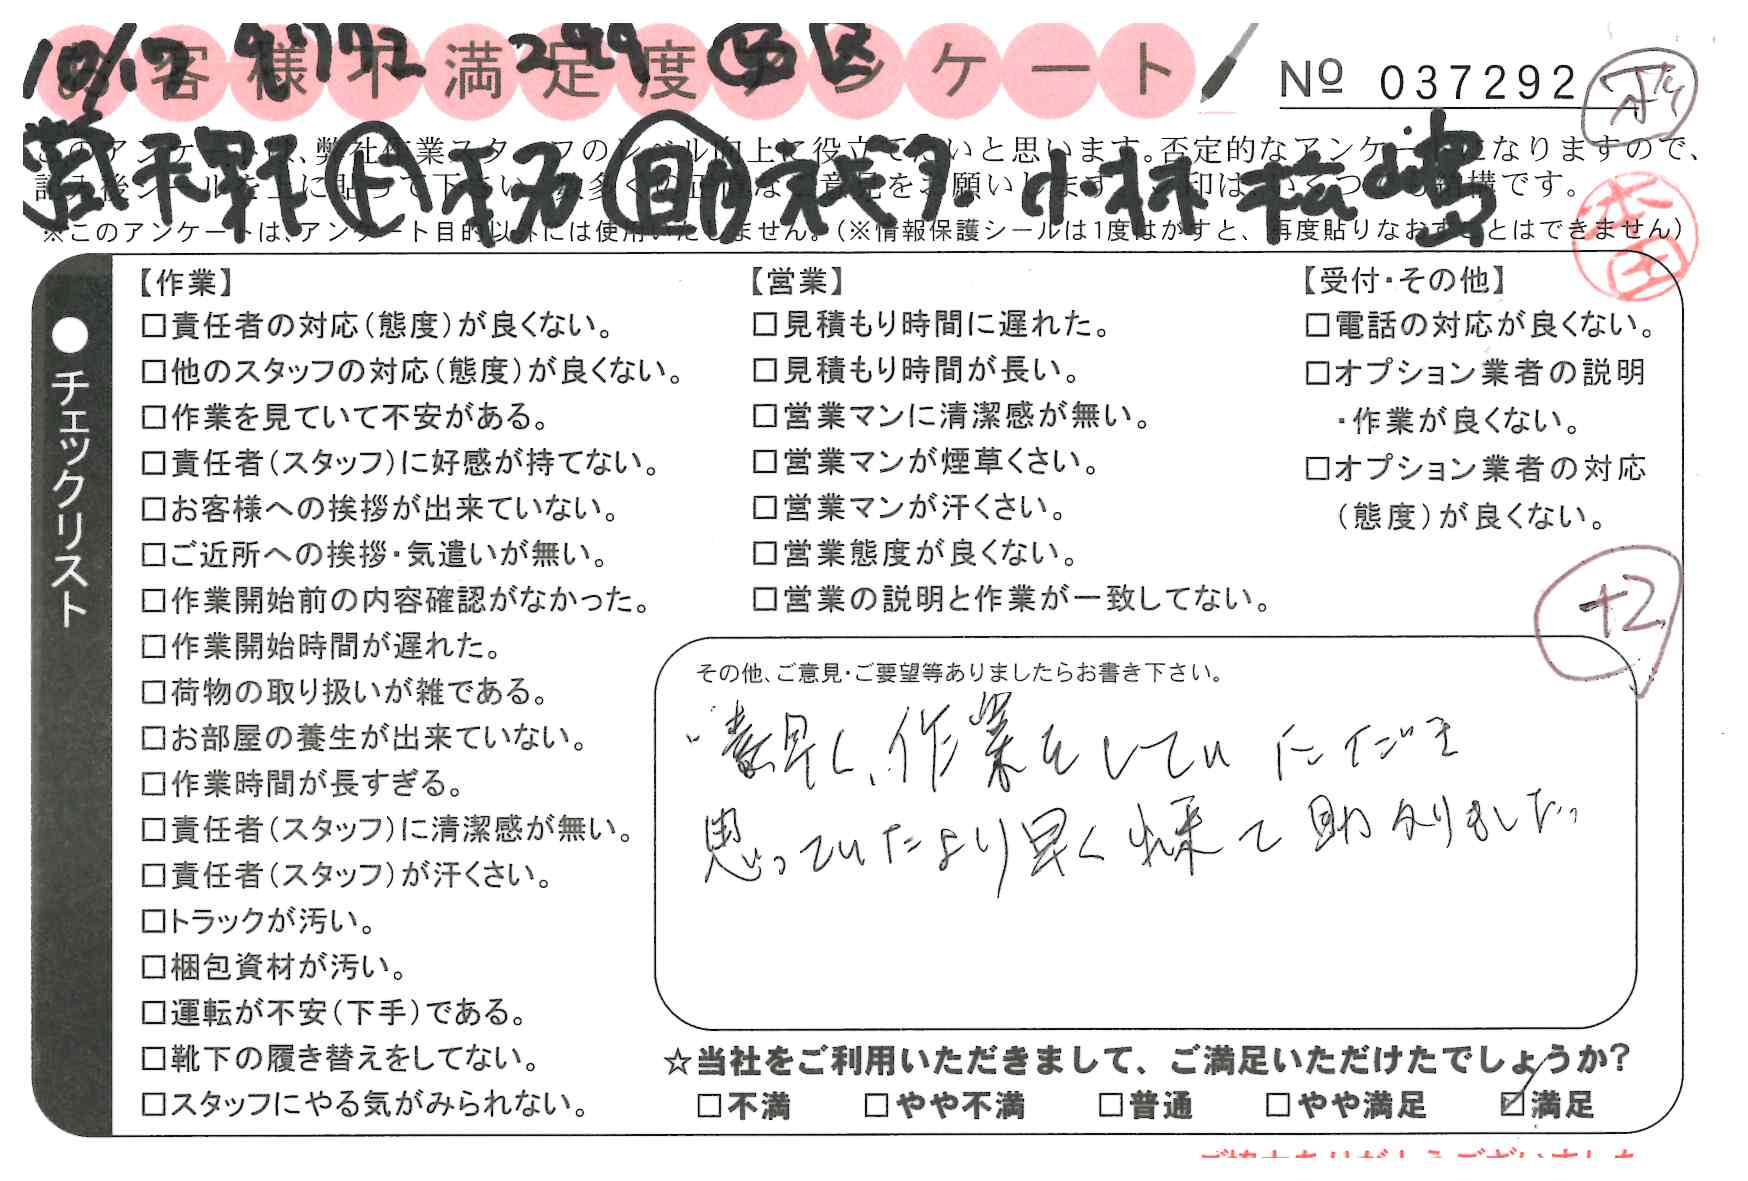 お客様不満足度アンケート
10/17 9172 299 西区
No 037292
このアンケートは、弊社作業スタッフのレベル向上に役立てたいと思います。否定的なアンケートになりますので、
記入後シールを上に貼って下さい。数多くの正直なご意見をお願いします。
小林 松嶋
※このアンケートは、アンケート目的以外には使用いたしません。(※情報保護シールは1度はがすと、再度貼りなおすことはできません)
本田
●チェックリスト
【作業】
□責任者の対応(態度)が良くない。
□他のスタッフの対応(態度)が良くない。
□作業を見ていて不安がある。
□責任者(スタッフ)に好感が持てない。
□お客様への挨拶が出来ていない。
□ご近所への挨拶・気遣いが無い。
□作業開始前の内容確認がなかった。
□作業開始時間が遅れた。
□荷物の取り扱いが雑である。
□お部屋の養生が出来ていない。
□作業時間が長すぎる。
□責任者(スタッフ)に清潔感が無い。
□責任者(スタッフ)が汗くさい。
□トラックが汚い。
□梱包資材が汚い。
□運転が不安(下手)である。
□靴下の履き替えをしてない。
□スタッフにやる気がみられない。
【営業】
□見積もり時間に遅れた。
□見積もり時間が長い。
□営業マンに清潔感が無い。
□営業マンが煙草くさい。
□営業マンが汗くさい。
□営業態度が良くない。
□営業の説明と作業が一致してない。
【受付・その他】
□電話の対応が良くない。
□オプション業者の説明
・作業が良くない。
□オプション業者の対応
(態度)が良くない。
+2
その他、ご意見・ご要望等ありましたらお書き下さい。
素早く、作業をしていただき
思っていたより早く出来て助かりました。
☆当社をご利用いただきまして、ご満足いただけたでしょうか?
□不満 □やや不満 □普通 □やや満足 ☑満足
ご協力ありがとうございました